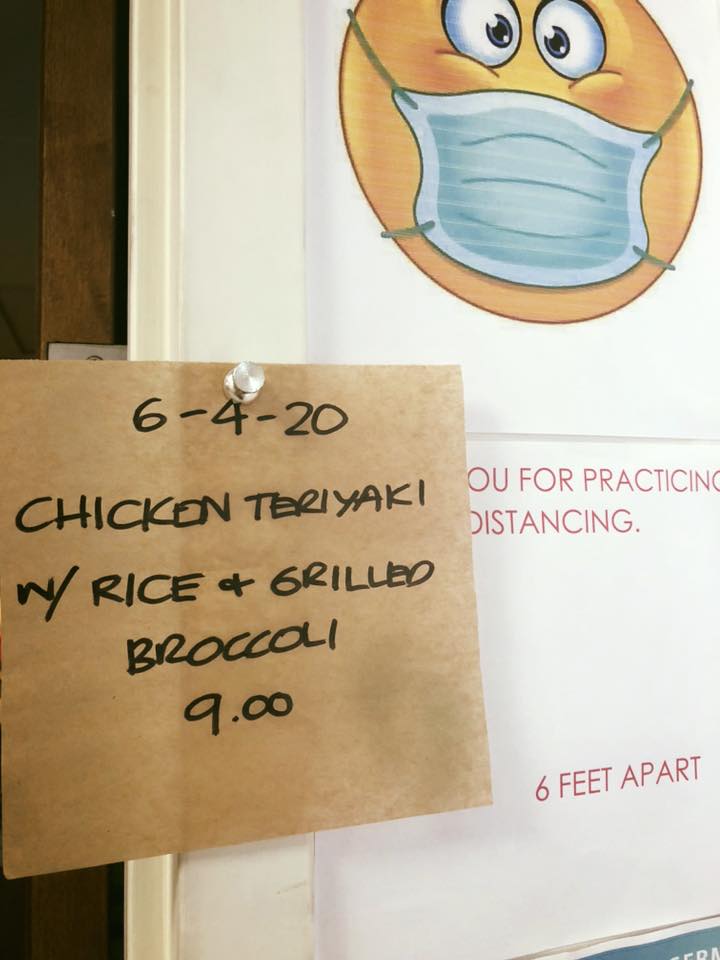 6-4-20
CHICKEN TERIYAKI
W/ RICE & GRILLED
BROCCOLI
9.00
OU FOR PRACTICING
DISTANCING.
6 FEET APART